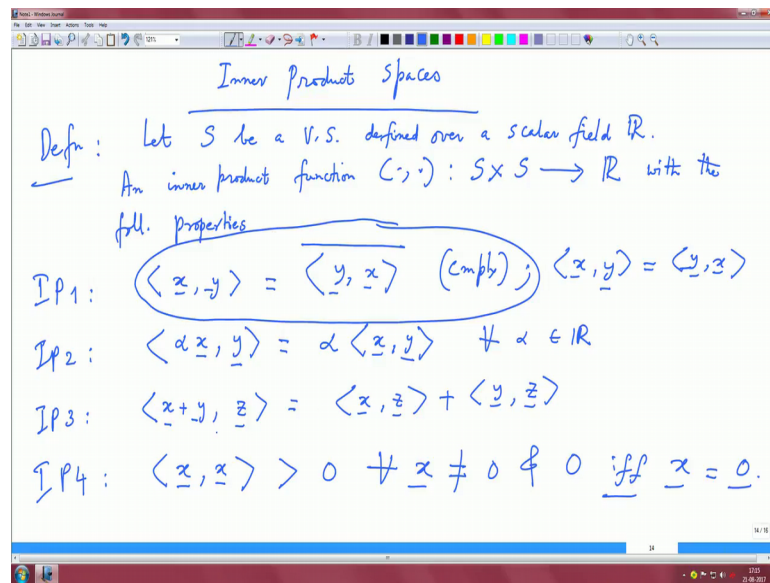 Note1 - Windows Journal
File Edit View Insert Actions Tools Help
121%
Inner Product Spaces
Defn : Let S be a V.S. defined over a scalar field ℝ.
An inner product function (·, ·) : S × S → ℝ with the
foll. properties
IP1 : ⟨x, y⟩ = \overline{⟨y, x⟩} (Cmplx) ; ⟨x, y⟩ = ⟨y, x⟩
IP2 : ⟨α x, y⟩ = α ⟨x, y⟩ ∀ α ∈ ℝ
IP3 : ⟨x + y, z⟩ = ⟨x, z⟩ + ⟨y, z⟩
IP4 : ⟨x, x⟩ > 0 ∀ x ≠ 0 & 0 iff x = 0.
14 / 16
14
17:15